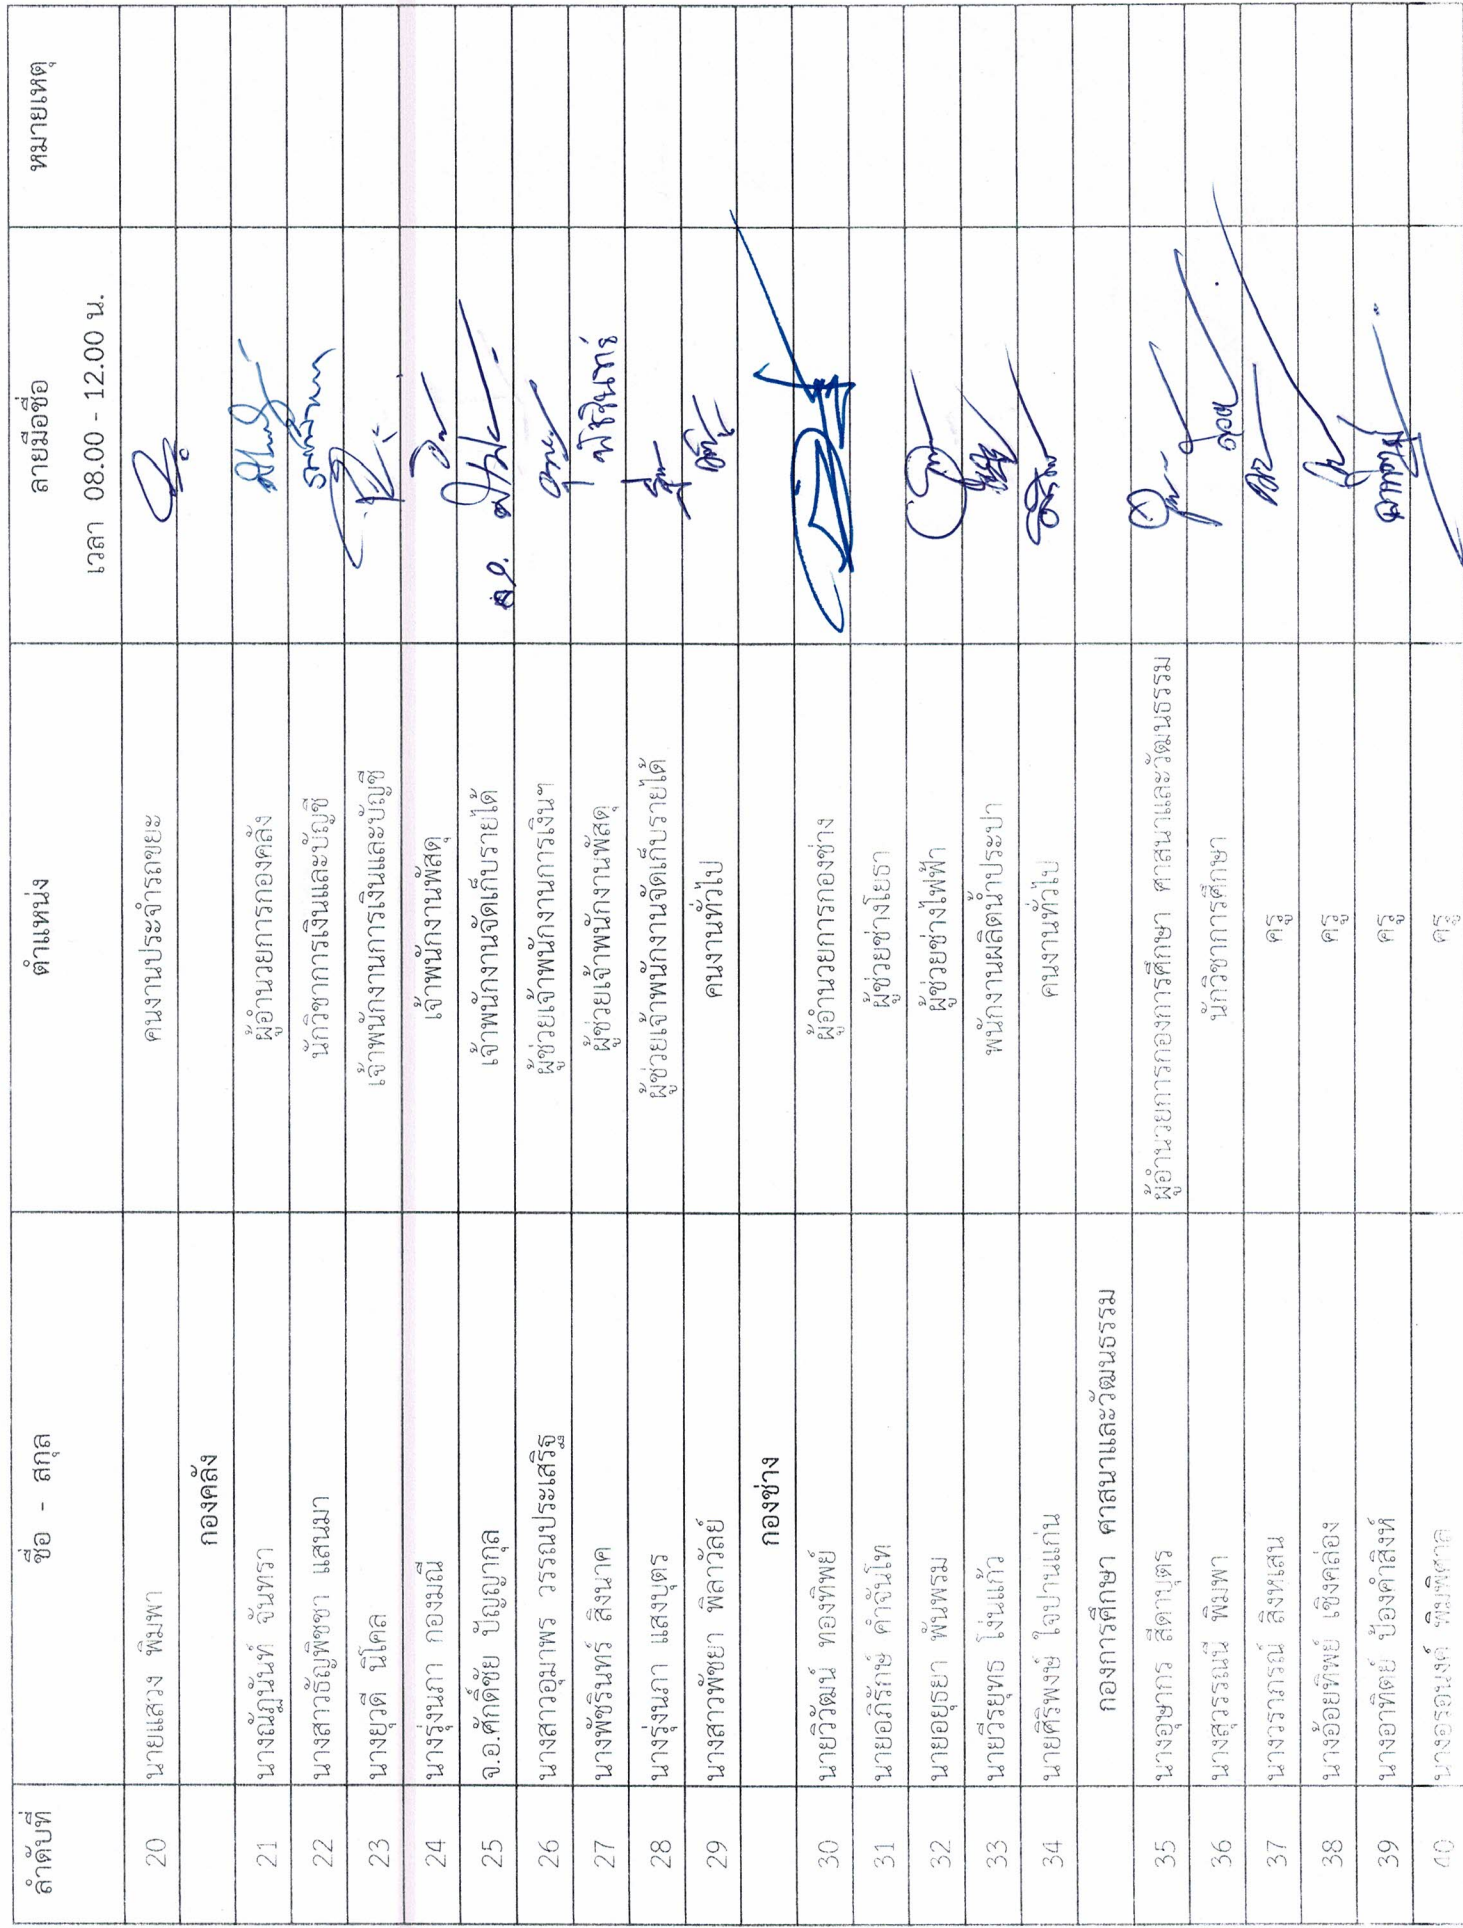 ลำดับที่ ชื่อ - สกุล ตำแหน่ง ลายมือชื่อ หมายเหตุ
เวลา 08.00 - 12.00 น.
20 นายแสวง พิมพา คนงานประจำรถขยะ
กองคลัง
21 นางณัฏฐนันท์ จันทรา ผู้อำนวยการกองคลัง
22 นางสาวธัญพิชชา แสนมา นักวิชาการเงินและบัญชี
23 นางยุวดี นิโคล เจ้าพนักงานการเงินและบัญชี
24 นางรุ่งนภา กองมณี เจ้าพนักงานพัสดุ
25 จ.อ.ศักดิ์ชัย ปัญญากุล เจ้าพนักงานจัดเก็บรายได้ จ.อ.
26 นางสาวอุมาพร วรรณประเสริฐ ผู้ช่วยเจ้าพนักงานการเงินฯ
27 นางพัชรินทร์ สิงนาค ผู้ช่วยเจ้าพนักงานพัสดุ พัชรินทร์
28 นางรุ่งนภา แสงบุตร ผู้ช่วยเจ้าพนักงานจัดเก็บรายได้
29 นางสาวพัชยา พิลาวัลย์ คนงานทั่วไป
กองช่าง
30 นายวิวัฒน์ ทองทิพย์ ผู้อำนวยการกองช่าง
31 นายอภิรักษ์ คำจันโท ผู้ช่วยช่างโยธา
32 นายอยุธยา พันพรม ผู้ช่วยช่างไฟฟ้า
33 นายวีรยุทธ โง่นแก้ว พนักงานผลิตน้ำประปา
34 นายศิริพงษ์ ใจปานแก่น คนงานทั่วไป
กองการศึกษา ศาสนาและวัฒนธรรม
35 นางอุษากร สีดาบุตร ผู้อำนวยการกองการศึกษา ศาสนาและวัฒนธรรม
36 นางสุวรรณนี พิมพา นักวิชาการศึกษา
37 นางวราภรณ์ สิงหเสน ครู
38 นางอ้อยทิพย์ เชิงคล่อง ครู
39 นางอาทิตย์ ป้องคำสิงห์ ครู
40 นางอรอนงค์ พิมพิศาล ครู